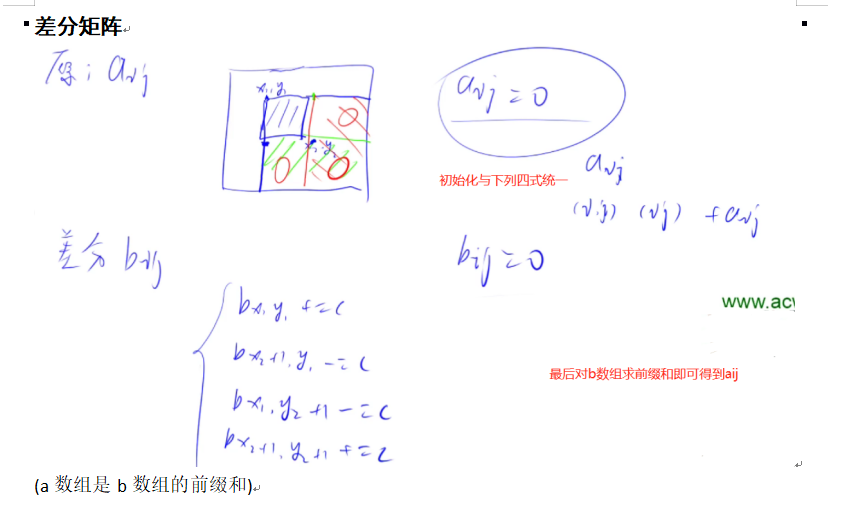 差分矩阵
原: aij
x1,y1
x2,y2
aij = 0
初始化与下列四式统一
aij
(i,j) (i,j) + aij
差分 bij
bij = 0
bx1,y1 += c
bx2+1,y1 -= c
bx1,y2+1 -= c
bx2+1,y2+1 += c
www.ac
最后对b数组求前缀和即可得到aij
(a 数组是 b 数组的前缀和)